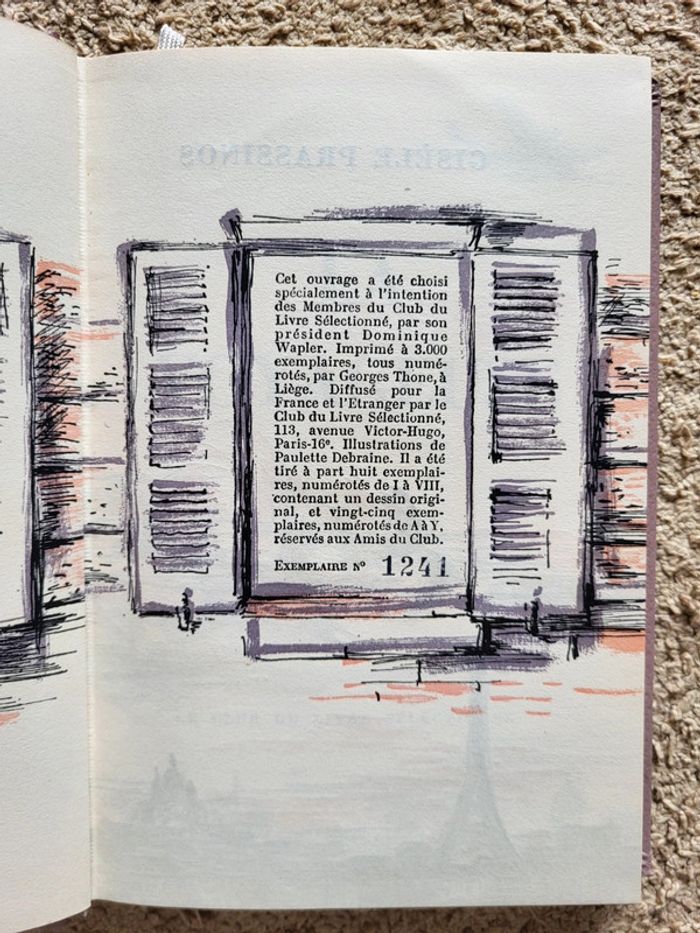 GISÈLE PRASSINOS
Cet ouvrage a été choisi
spécialement à l'intention
des Membres du Club du
Livre Sélectionné, par son
président Dominique
Wapler. Imprimé à 3.000
exemplaires, tous numé-
rotés, par Georges Thone, à
Liège. Diffusé pour la
France et l'Etranger par le
Club du Livre Sélectionné,
113, avenue Victor-Hugo,
Paris-16e. Illustrations de
Paulette Debraine. Il a été
tiré à part huit exemplai-
res, numérotés de I à VIII,
contenant un dessin origi-
nal, et vingt-cinq exem-
plaires, numérotés de A à Y,
réservés aux Amis du Club.
EXEMPLAIRE No 1241